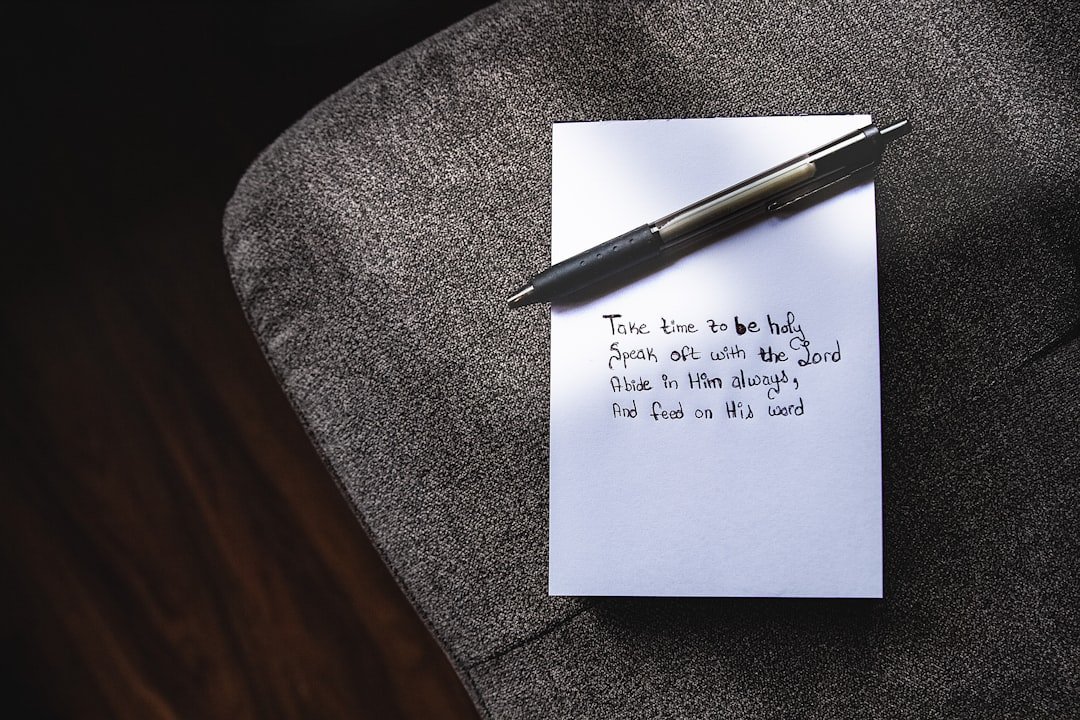 Take time to be holy
Speak oft with the Lord
Abide in Him always,
And feed on His word